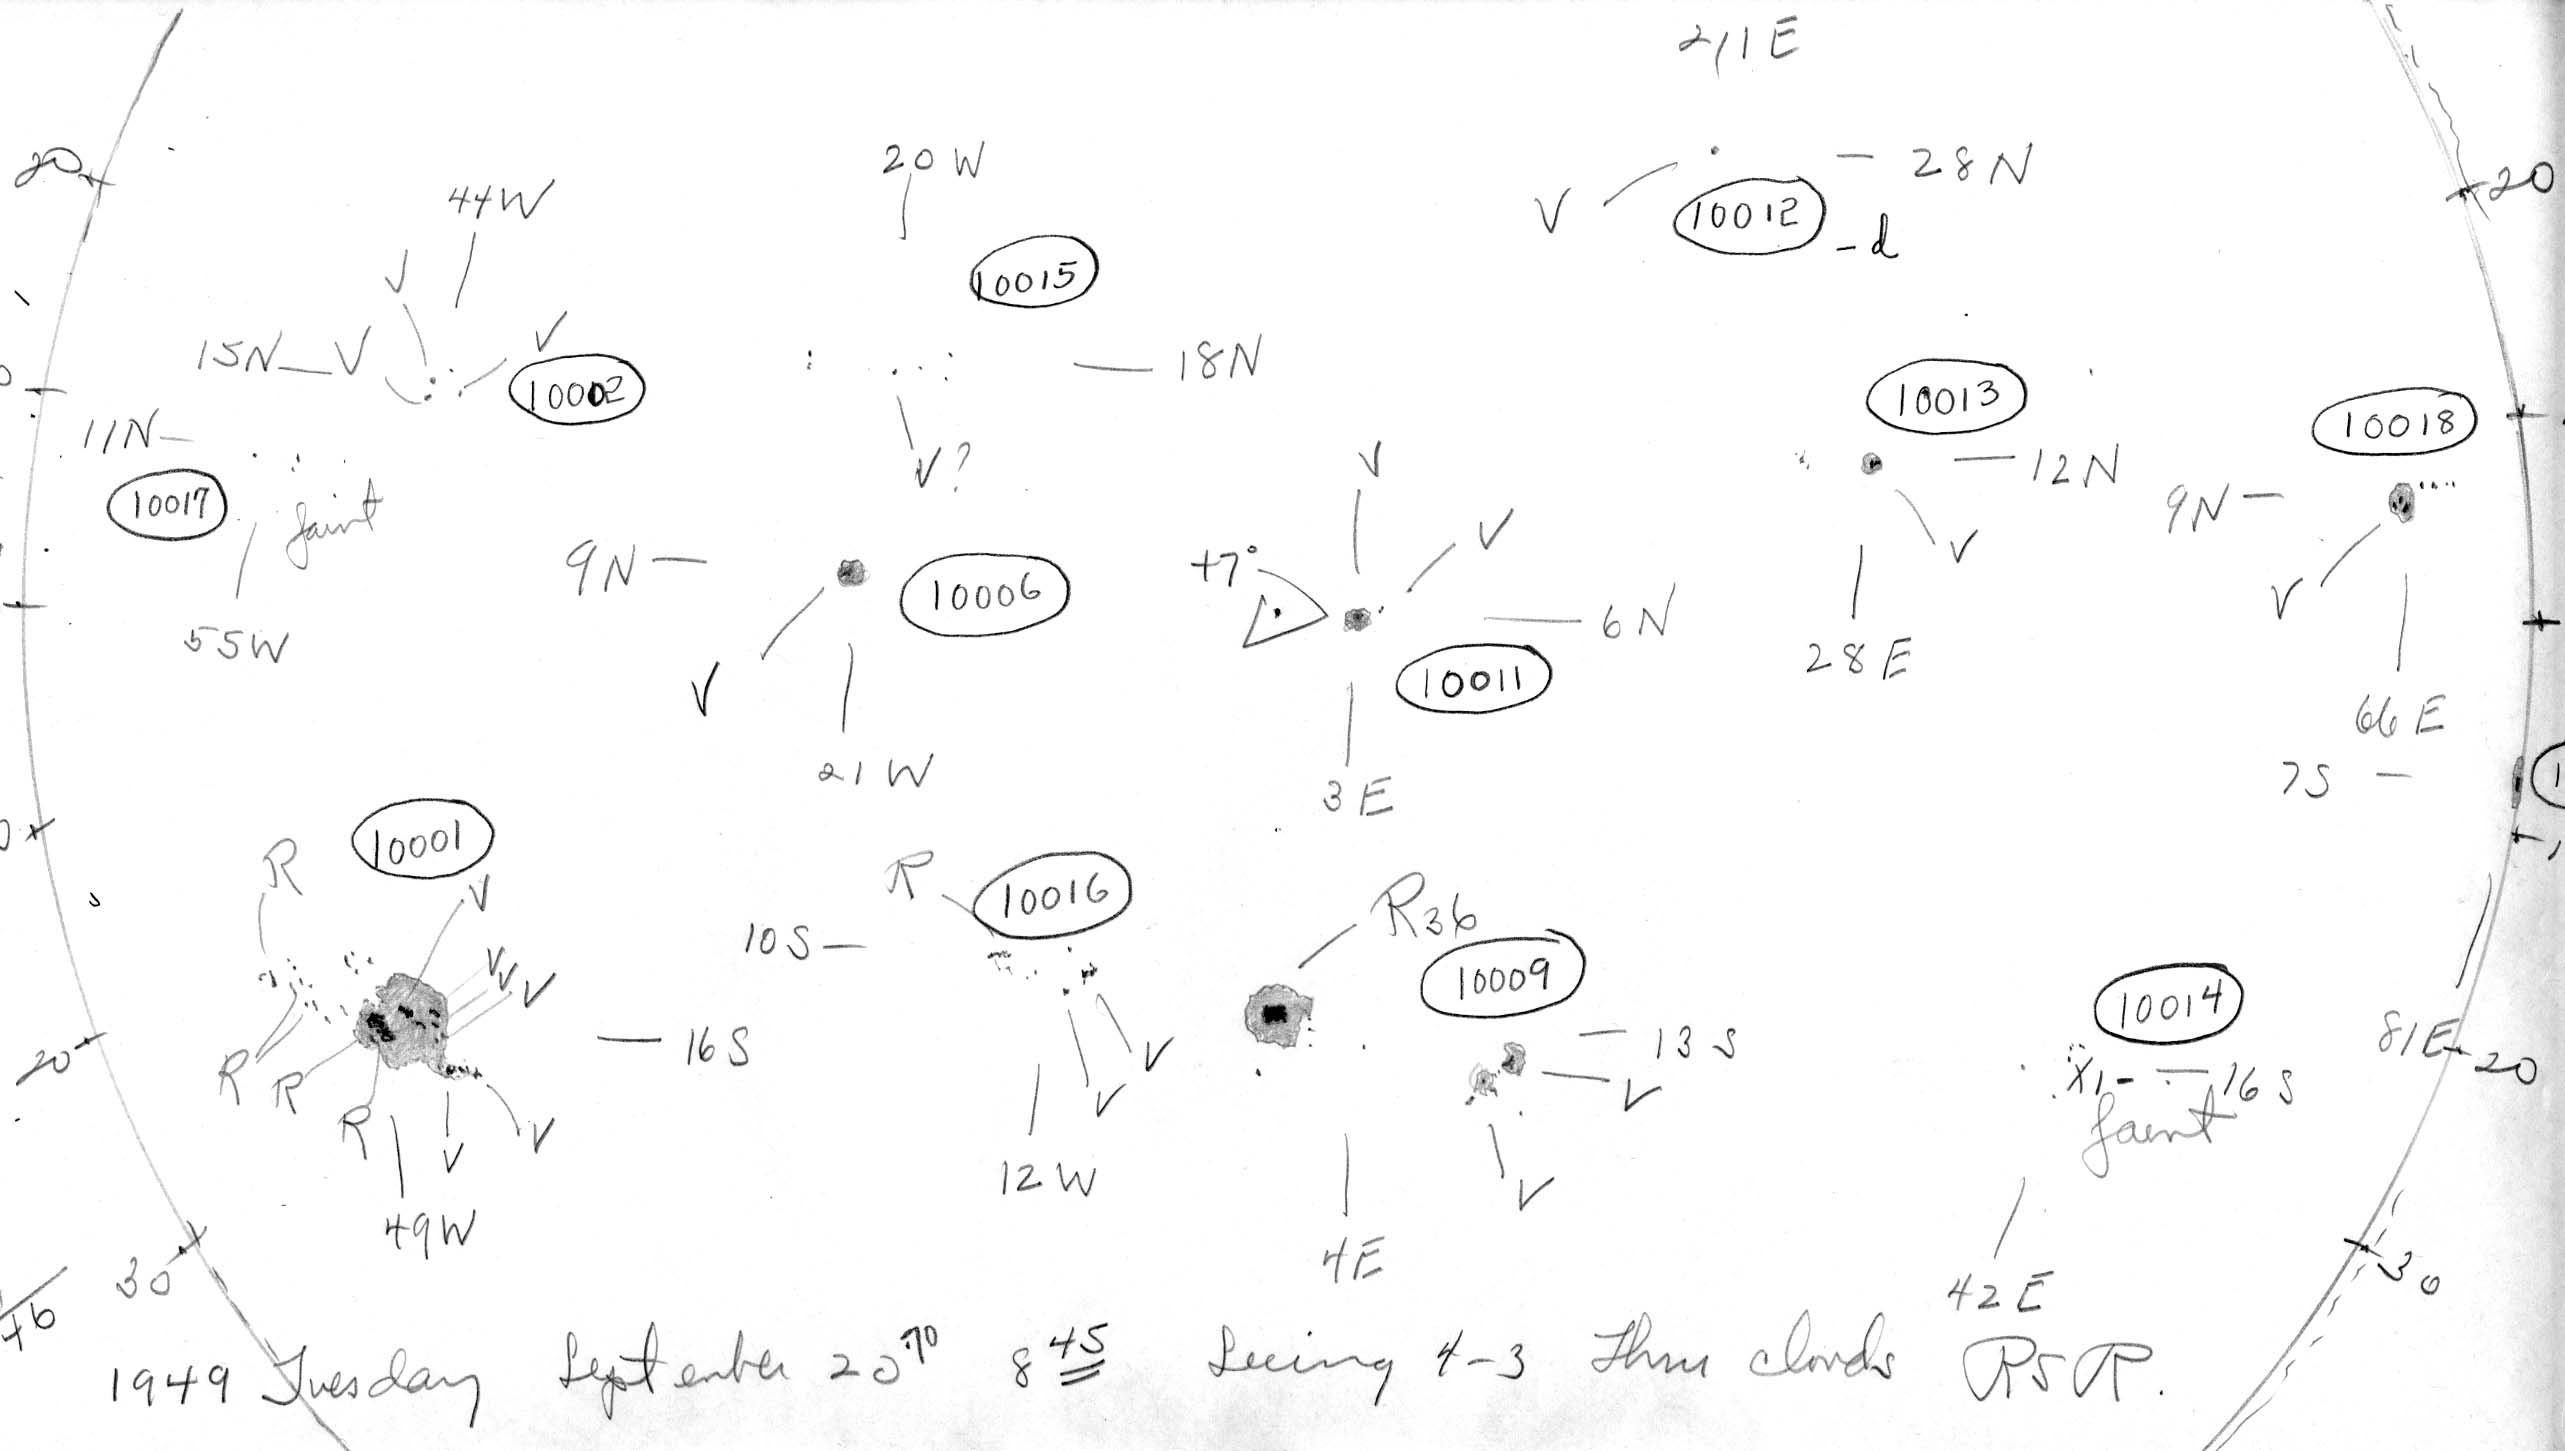 21 E
20
44W
20 W
28N
20
V
10012
-d
V
10015
V
15N
V
10002
18N
11N
10013
10018
10017
faint
V?
V
12N
9N
9N
10006
+7°
V
V
V
6N
55W
10011
28E
V
66E
21W
3E
7S
10001
R
V
R
10016
R36
10S
10009
V
V
V
10014
16S
13S
81E
20
20
R
R
R
V
V
V
V
X1-
16S
faint
V
V
12W
49W
4E
30
42E
30
46
1949 Tuesday September 20 70 8 45 Seeing 4-3 Thru clouds RSR.